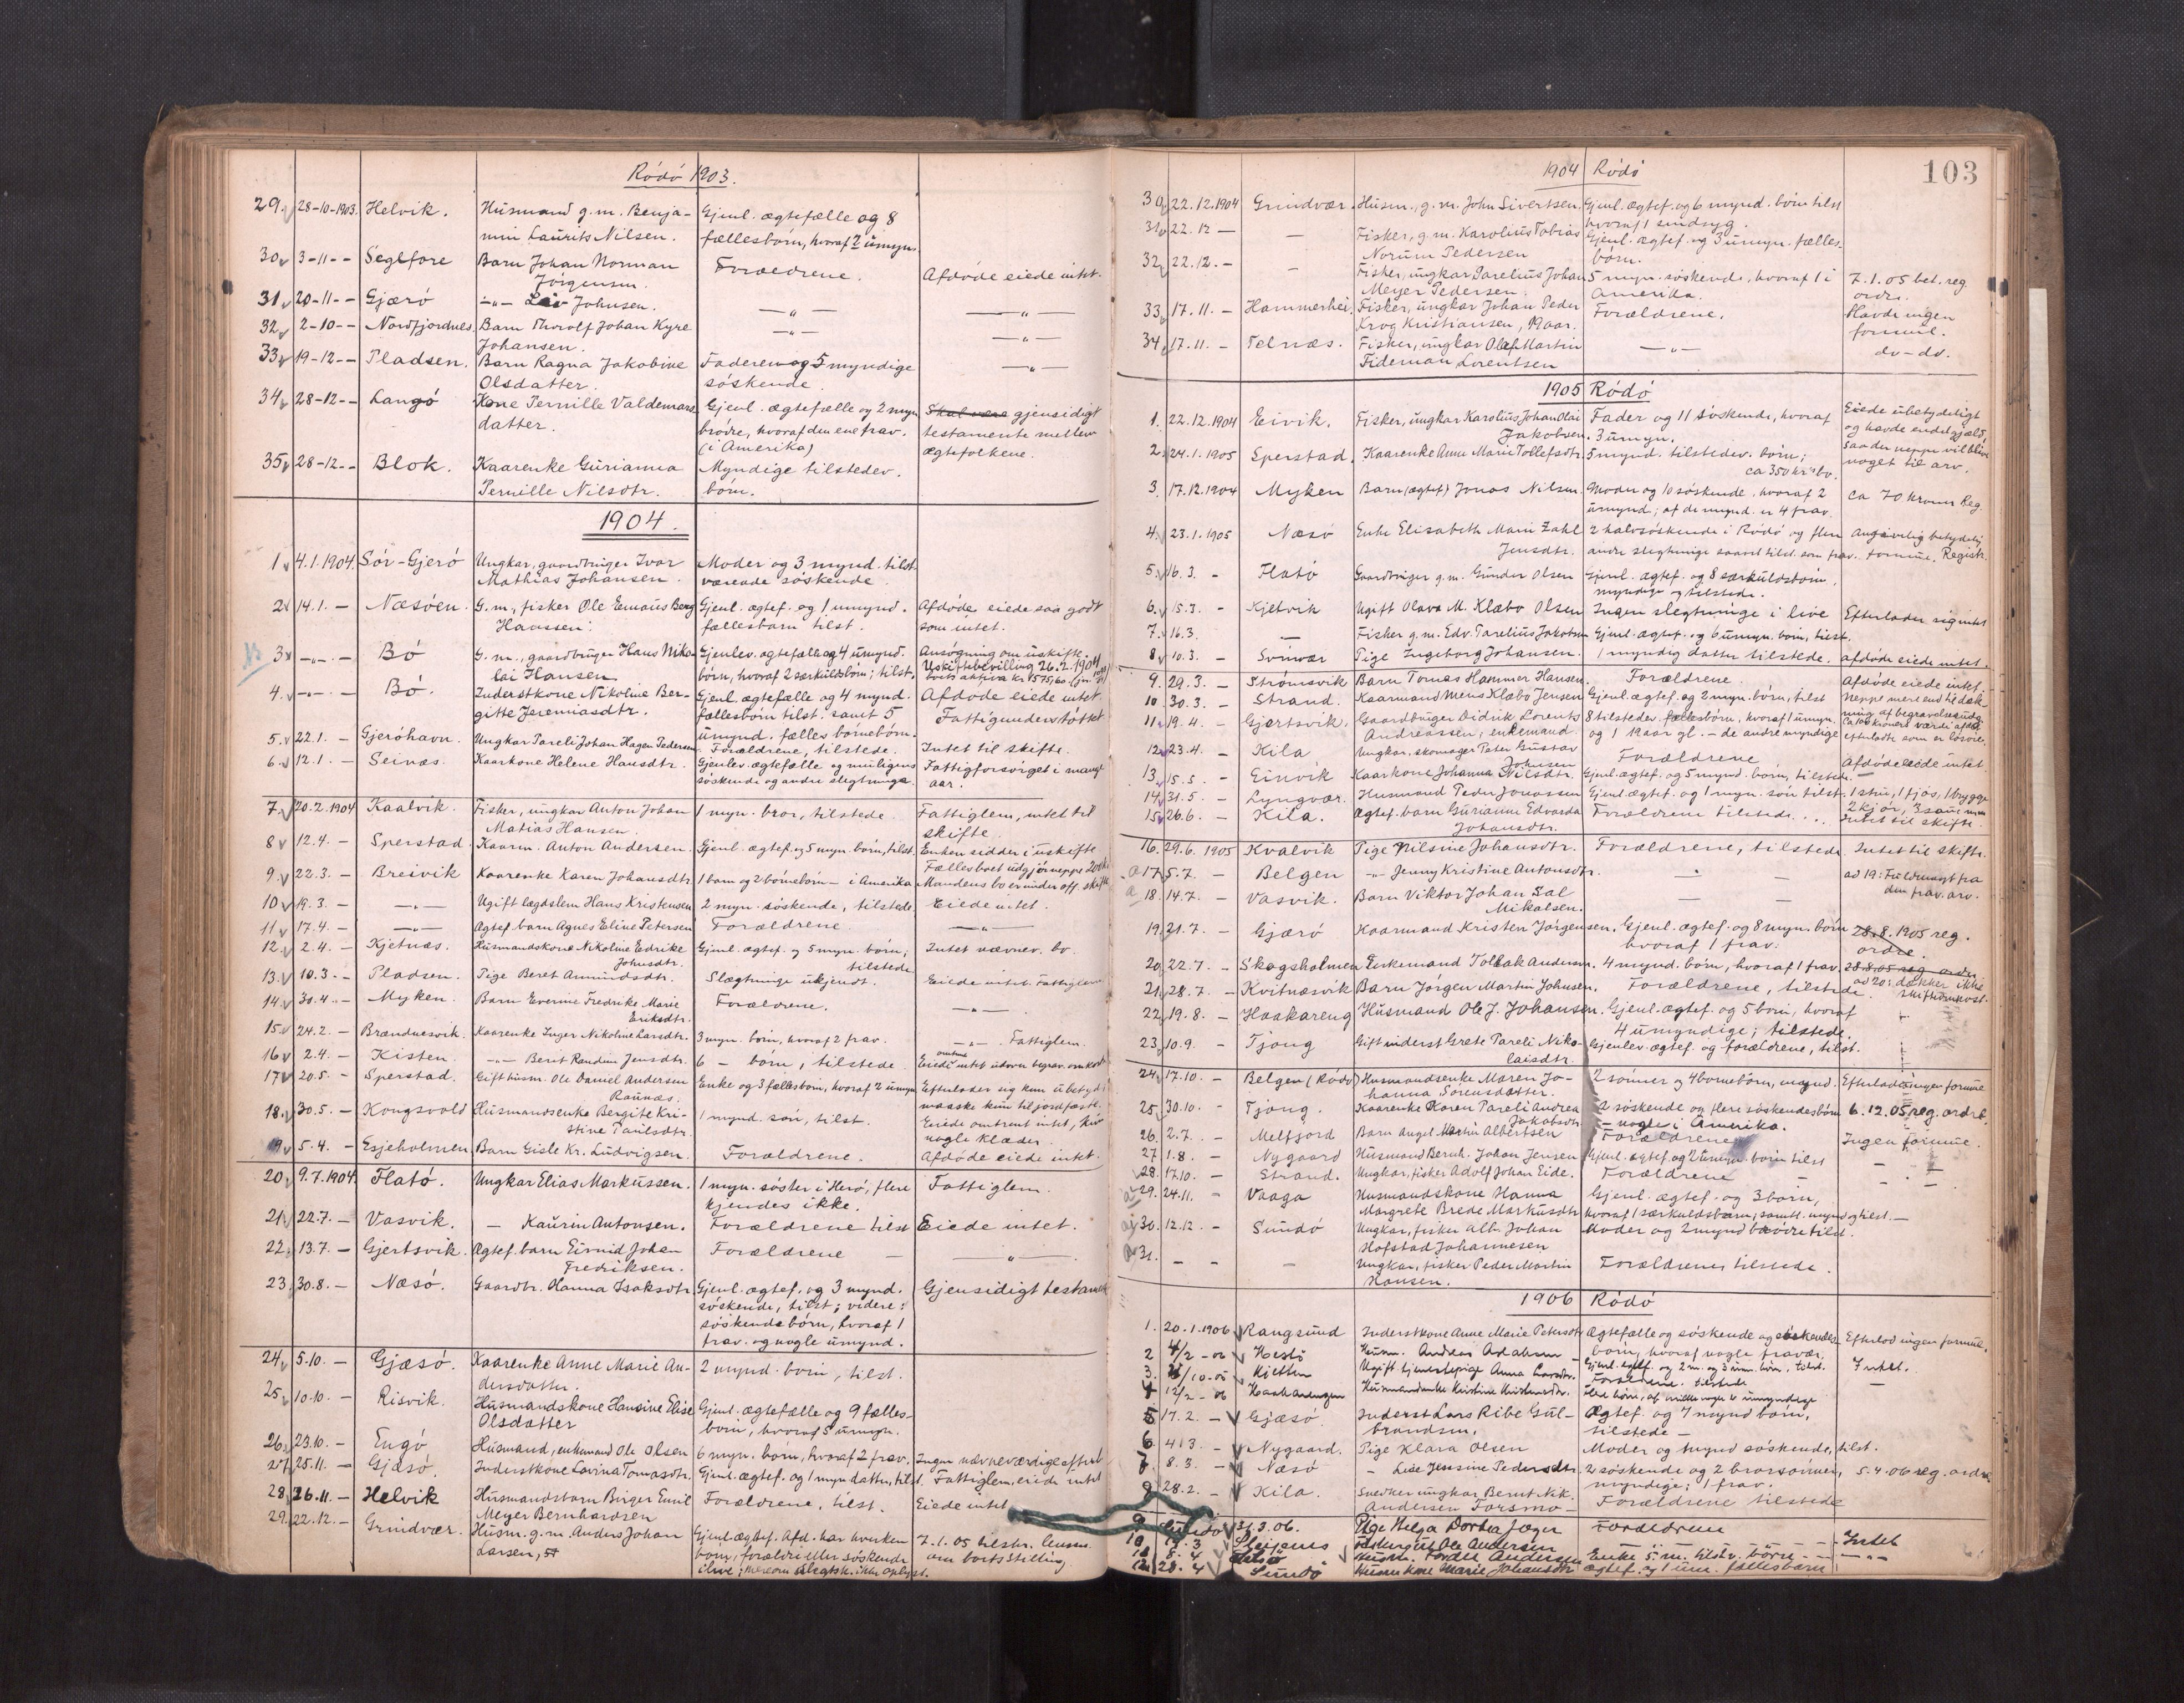 Rödö 1903.
29. 28-10-1903. Helvik. Husmand g.m. Benja- Gjenl. ægtefælle og 8
min Laurits Nilsen. fællesbörn, hvoraf 2 umyn.
30 3-11-- Seglfore Barn Johan Norman Forældrene. Afdöde eiede intet.
Jörgensen.
31 20-11-- Gjærö -"- Johnsen. -"- -"-
32 2-10-- Nordfjordnes. Barn Thorolf Johan Kyre -"- -"-
Johansen.
33 19-12-- Pladsen. Barn Ragna Jakobine Faderen og 5 myndige -"-
Olsdatter. söskende.
34 28-12-- Langö Kone Pernille Valdemars- Gjenl. ægtefælle og 2 myn. Skal være gjensidigt
datter. brödre, hvoraf den ene frav. testamente mellem
(i Amerika) ægtefolkene.
35 28-12-- Blok. Kaarenke Gurianna Myndige tilstedev.
Pernille Nilsdtr. börn.
1904.
1 4.1.1904. Sör-Gjerö Ungkar, gaardbruger Ivar Moder og 3 mynd. tilst.
Mathias Johansen. værende söskende.
2 14.1.- Næsöen. G.m., fisker Ole Emaus Berg Gjenl. ægtef. og 1 umynd. Afdöde eiede saa godt
Hanssen. fællesbarn tilst. som intet.
3 -"-.- Bö G.m., gaardbruger Hans Niko- Gjenlev. ægtefælle og 4 umynd. Ansögning om uskifte.
lai Hansen börn, hvoraf 2 særkuldsbörn; tilst. Uskiftebevilling 26.2.1904
4. -"-.- Bö. Inderstkone Nikoline Ber- Gjenl. ægtefælle og 4 mynd. Afdöde eiede intet.
gitte Jeremiasdtr. fællesbörn tilst. samt 5 Fattigunderstöttet
umynd. fælles börnebörn.
5. 22.1.- Gjeröhavn. Ungkar Pareli Johan Hagen Pedersen Forældrene, tilstede. Intet til skifte.
6. 12.1.- Seinæs. Kaarkone Helene Hansdtr. Gjenlev. ægtefælle og muligens Fattigforsörget i mange
söskende og andre slegtninge. aar.
7. 20.2.1904 Kaalvik. Fisker, ungkar Anton Johan 1 myn. bror, tilstede. Fattiglem, intet til
Matias Hansen. skifte.
8 12.4.- Sperstad. Kaarm. Anton Andersen. Gjenl. ægtef. og 5 myn. börn, tilst. Enken sidder i uskifte
9. 22.3.- Breivik Kaarenke Karen Johansdtr. 1 barn og 2 börnebörn - i Amerika Mandens bo er under off. skifte
10 19.3.- -"- Ugift lægdslem Hans Kristensen 2 myn. söskende, tilstede. Eiede intet.
11 17.4.- -"- Ægtef. barn Agnes Eline Petersen Forældrene. -"-
12. 2.4.- Kjetnæs. Husmandskone Nikoline Edrike Gjenl. ægtef. og 5 myn. börn; Intet nævnev. bo.
Johnsdtr. tilstede
13. 10.3.- Pladsen. Pige Beret Amundsdtr. Slægtninge ukjendt. Eiede intet. Fattiglem
14. 30.4.- Myken. Barn Everine Fredrike Marie Forældrene. -"-
Eriksdtr.
15. 24.2.- Brændnesvik. Kaarenke Inger Nikoline Larsdtr. 3 myn. börn, hvoraf 2 frav. -"- Fattiglem.
16 2.4.- Kisten. -"- Berit Randine Jensdtr. 6 - börn, tilstede Eiede omtrent intet udover begrav. omkost.
17 20.5.- Sperstad. Gift husm. Ole Daniel Andersen Enke og 3 fællesbörn, hvoraf 2 umyn. Efterlader sig kun ubetyd.
Raunæs. maaske kun til jordfæst.
18. 30.5.- Kongsvold Husmandsenke Bergite Kri- 1 mynd. sön, tilst. Eiede omtrent intet, kun
stine Paulsdtr. nogle klæder.
19 5.4.- Esjeholmen, Barn Gisle Kr. Ludvigsen. Forældrene. Afdöde eiede intet.
20. 9.7.1904. Flatö. Ungkar Elias Markussen. 1 myn. söster i Herö; flere Fattiglem.
kjendes ikke.
21. 22.7.- Vasvik. - Kaurin Antonsen. Forældrene tilst Eiede intet.
22. 13.7.- Gjertsvik. Ægtef. barn Eivind Johan Forældrene - -"-
Fredriksen.
23. 30.8.- Næsö. Gaardbr. Hanna Isaksdtr. Gjenl. ægtef. og 3 mynd. Gjensidigt testament
söskende, tilst; videre:
söskendebörn, hvoraf 1
frav. og nogle umynd.
24. 5.10.- Gjæsö. Kaarenke Anne Marie An- 2 mynd. börn, tilst.
dersdatter.
25. 10.10.- Risvik. Husmandskone Hansine Elise Gjenl. ægtefælle og 9 fælles-
Olsdatter börn, hvoraf 5 umyn.
26. 23.10.- Engö Husmand, enkemand Ole Olsen 6 myn. börn, hvoraf 2 frav. Ingen nævneværdige
27. 25.11.- Gjæsö. Inderstkone Lovina Tomasdtr. Gjenl. ægtef. og 1 myn. datter, tilst. Fattiglem, eiede intet
28. 26.11.- Helvik Husmandsbarn Birger Emil Forældrene, tilst. Eiede intet
Meyer Bernhardsen
29. 22.12.- Grindvær. Husm. g.m. Anders Johan Gjenl. ægtef. Afd. har hverken 7.1.05 tilskr.
Larsen, börn, forældre eller söskende om bortsstilling.
ilive; slegtsk. ikke oplyst.
1904 Rödö 103
30. 22.12.1904 Grindvær. Husm., g.m. John Sivertsen. Gjenl. ægtef. og 6 mynd. börn tilst
hvoraf 1 sindsyg.
31 22.12 - - Fisker, g.m. Karolius Tobias Gjenl. ægtef. og 3 umyn. fælles-
Norum Pedersen börn.
32. 22.12.- - Fisker, ungkar Parelius Johan 5 myn. söskende, hvoraf 1 i 7.1.05 bet. reg
Meyer Pedersen. Amerika. ordre.
33. 17.11.- Hammerhei. Fisker, ungkar Johan Peder Forældrene. Havde ingen
Krog Kristiansen, 19 aar. formue.
34. 17.11.- Telnæs. Fisker, ungkar Olaf Martin -"- do-do.
Fideman Lorentsen
1905 Rödö
1. 22.12.1904 Eivik. Fisker, ungkar Karolius Johan Olai Fader og 11 söskende, hvoraf Eiede ubetydeligt
Jakobsen. 3 umyn. og havde endel gjæld,
2. 24.1.1905 Sperstad. Kaarenke Anne Marie Tollefsdtr. 5 mynd. tilstedev. börn; saa der neppe vil blive
ca 350 kr's bo. noget til arv.
3. 17.12.1904 Myken Barn (ægtef) Jonas Nilsen. Moder og 10 söskende, hvoraf 2 ca 70 kroner Reg.
umynd; af de mynd. er 4 frav.
4. 23.1.1905 Næsö Enke Elisabeth Marie Zahl 2 halvsöskende i Rödö og flere Angivelig betydelig
Jensdtr. andre slegtninge saavel tilst. som frav. formue. Registr.
5. 16.3.- Flatö Gaardbruger g.m. Gunder Olsen Gjenl. ægtef. og 8 særkuldsbörn,
myndige og tilstede.
6. 15.3.- Kjelvik Ugift Olava M. Klæbo Olsen Ingen slegtninge i live Efterlader sig intet
7. 16.3. - Fisker g.m. Edv. Parelius Jakobsen Gjenl. ægtef. og 6 umyn. börn, tilst.
8 10.3.- Svinvær Pige Ingeborg Johansen. 1 myndig datter tilstede. Afdöde eiede intet.
9. 29.3.- Strömsvik Barn Tomas Hammer Hansen. Forældrene. Afdöde eiede intet.
10. 30.3.- Strand. Kaarmand Mens Klæbo Jensen Gjenl. ægtef. og 2 myn. börn, tilst Neppe mere end til dæk-
ning af begravelsesudg.
11. 19.4.- Gjertsvik. Gaardbruger Didrik Lorents 8 tilstedev. fællesbörn, hvoraf 1 umyn. Ca 100 kroners værdi
Andreassen; enkemand og 1 19 aar gl. - de andre myndige
12. 23.4.- Kila Ungkar, skomager Peter Gustav Forældrene Afdöde eiede intet
Johnsen
13. 15.5.- Einvik Kaarkone Johanna Nilsdtr. Gjenl. ægtef. og 5 mynd. börn, tilstede. -
14. 31.5.- Lyngvær. Husmand Peder Jonassen Gjenl. ægtef. og 1 myn. sön tilst. 1 stue, 1 fjös, 1 brygge
2 kjör, 3 sauer
15. 26.6.- Kila. Ægtef. barn Gurianne Edvarda Forældrene tilstede... Intet til skifte.
Johansdtr.
16. 29.6.1905 Kvalvik Pige Nilsine Johansdtr. Forældrene, tilstede. Intet til skifte.
17. 5.7.- Belgen -"- Jenny Kristine Antonsdtr. -"- ad 19: Fuldmagt fra
18. 14.7.- Vasvik. Barn Viktor Johan Dal - - den frav. arv.
Mikalsen.
19. 21.7.- Gjærö Kaarmand Kristen Jörgensen. Gjenl. ægtef. og 8 myn. börn 28.8.1905 reg.
hvoraf 1 frav. ordre.
20. 22.7.- Skogsholmen Enkemand Tollak Andersen. 4 mynd. börn, hvoraf 1 frav. 28.8.05 reg. ordre
21. 28.7.- Kvitnæsvik Barn Jörgen Martin Johnsen. Forældrene, tilstede. ad 20: dækker ikke
skifteomkost.
22. 19.8.- Haakareng Husmand Ole J. Johansen. Gjenl. ægtef. og 5 börn, hvoraf
4 umyndige; tilstede.
23. 10.9.- Tjong Gift inderst Grete Pareli Niko- Gjenlev. ægtef. og forældrene, tilst.
laisdtr.
24. 17.10.- Belgen (Rödö) Husmandsenke Maren Jo- 2 sönner og 4 börnebörn, mynd. Efterlader ingen formue
hanna Sörensdatter.
25. 30.10.- Tjong. Kaarenke Karen Pareli Andrea 2 söskende og flere söskendebörn 6.12.05 reg. ordre
Jakobsdtr - nogle i Amerika.
26. 2.7.- Melfjord Barn Angel Martin Albertsen Forældrene Ingen formue.
27 1.8.- Nygaard Husmand Bernh. Johan Jensen Gjenl. ægtef. og 2 umyn. börn tilst -
28. 17.10.- Strand. Ungkar, fisker Adolf Johan Eide. Forældrene -
29. 24.11.- Vaaga Husmandskone Hanna Gjenl. ægtef. og 3 börn,
Margrete Brede Markusdtr hvoraf 1 særkuldsbarn; samtl. mynd og tilst. -
30. 12.12.- Sundö Ungkar, fisker Alb. Johan Moder og 2 mynd brödre tilst.
Hofstad Johannesen
31. - - - Ungkar, fisker Peder Martin Forældrene tilstede.
Hansen.
1906 Rödö
1. 20.1.1906 Rangsund Inderstkone Anne Marie Petersdtr Ægtefælle og söskende og söskende- Efterlod ingen formue.
börn, hvoraf nogle fravær.
2 4/2-06 Hestö Husm. Andreas Adahsen Gjenl. ægtf. og 2 m. og 3 um. börn, tilst. Intet.
3. /10-05 Kjetten Ugift tjenestepige Anna Larsdtr. Forældrene tilstede -
4 12/2-06 Haakarengen Husmandsenke Kristine Kristensdtr.
5 17.2.- Gjæsö. Inderst Lars Ribe Gul- Ægtef. og 7 mynd börn,
brandsen. tilstede -
6. 413.- Nygaard. Pige Klara Olsen Moder og mynd söskende, tilst.
7. 8.3.- Næsö - Lise Jensine Pedersdtr. 2 söskende og 2 brorsönner, 5.4.06 reg. ordre
myndige; 1 frav.
8 28.2.- Kila. Snedker ungkar Bernt Nik. Forældrene tilstede
Andersen Forsmo -
9 Sundö 31.3.06. Pige Helga Dortea Jæger Forældrene
10 19.3 Ole Andersen Intet
11 5.4 Husm. Andersen Enke 5 m. tilst. börn -"-
12 28.4 Sundö Husm kone Marie Johansdtr Ægtef. og 1 um. fællesbarn